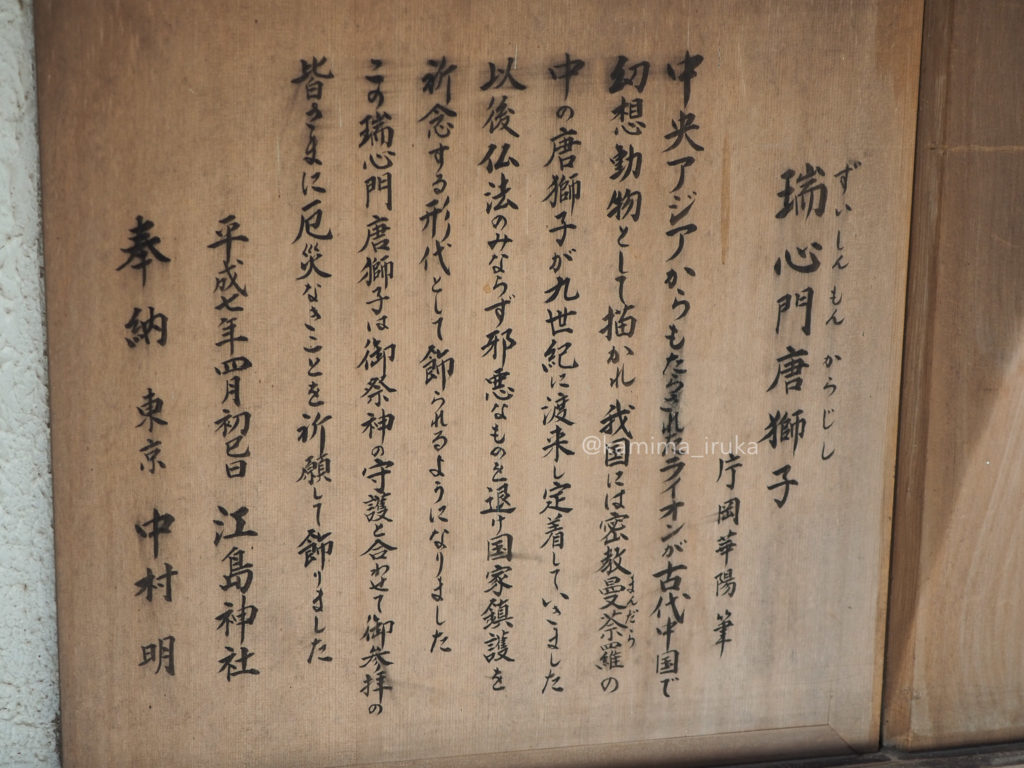 瑞心門唐獅子
ずいしんもん からじし
片岡華陽 筆
中央アジアからもたらされライオンが古代中国で
幻想動物として描かれ我国には密教曼荼羅の
まんだら
中の唐獅子が九世紀に渡来し定着していきました
以後仏法のみならず邪悪なものを退け国家鎮護を
祈念する形代として飾られるようになりました
この瑞心門唐獅子は御祭神の守護と合わせて御参拝の
皆さまに厄災なきことを祈願して飾りました
平成七年四月初巳日 江島神社
奉納 東京 中村 明
@kamima_iruka